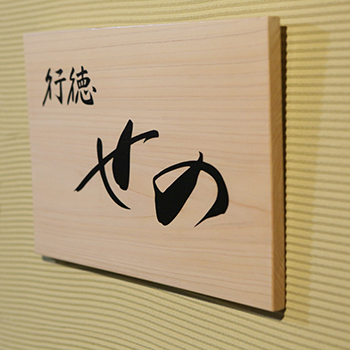 行徳
せの